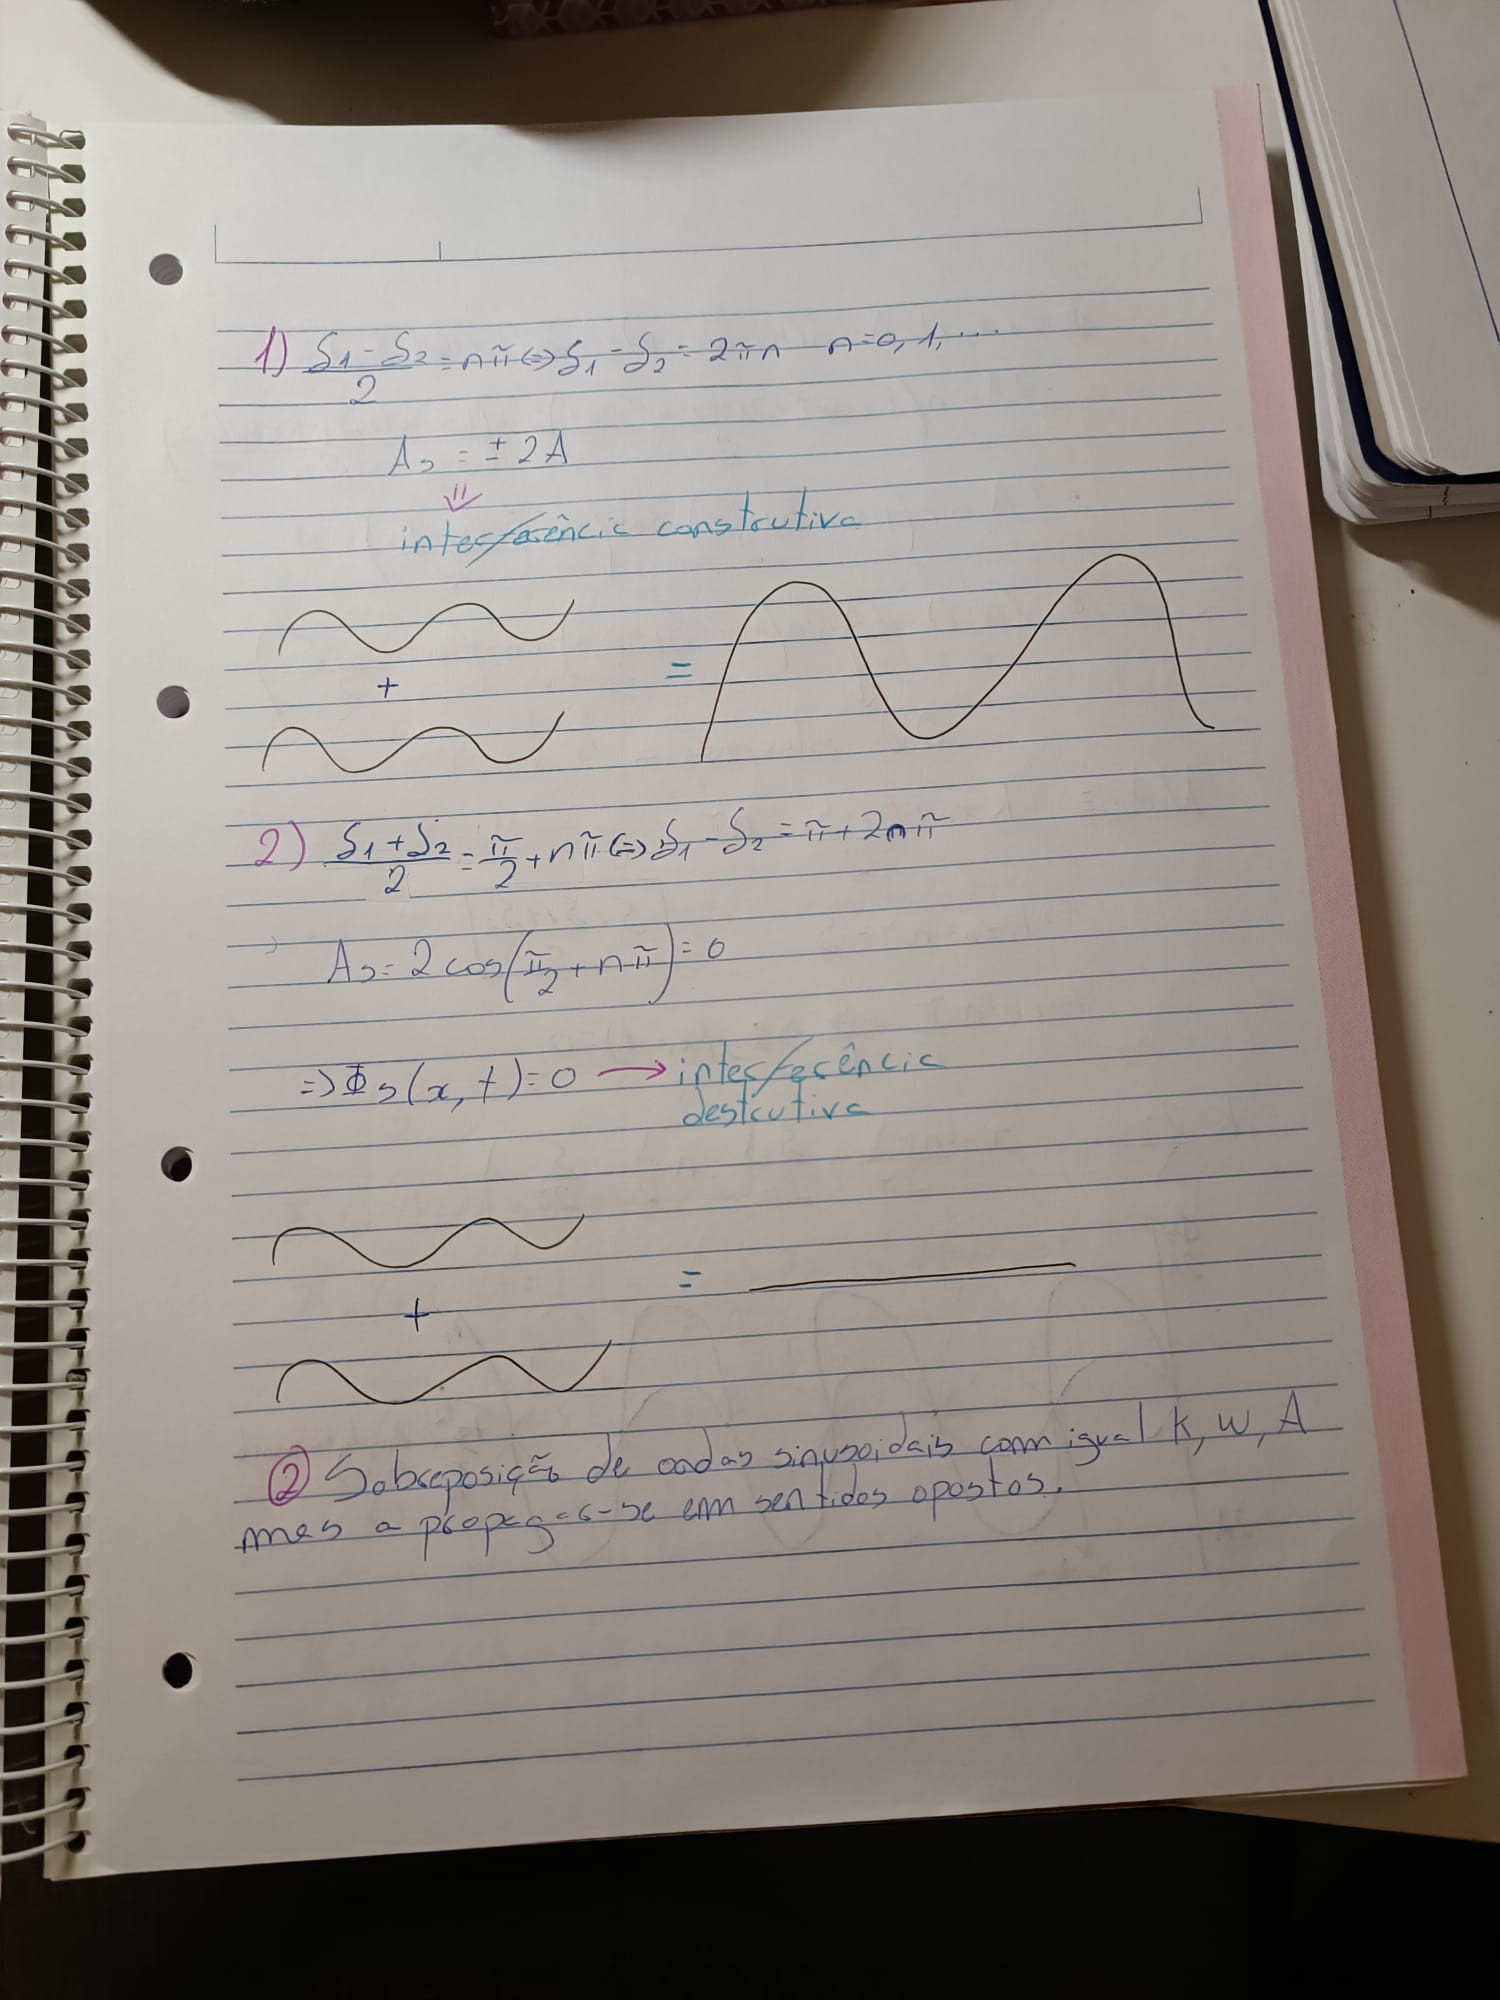 1) (δ₁ - δ₂)/2 = nπ ⇔ δ₁ - δ₂ = 2πn n=0, 1, ...
As = ± 2A
⇓
interferência construtiva
+
=
2) (δ₁ + δ₂)/2 = π/2 + nπ ⇔ δ₁ - δ₂ = π + 2nπ
As = 2 cos(π/2 + nπ) = 0
⇒ Φs(x, t) = 0 → interferência
destrutiva
+
=
② Sobreposição de ondas sinusoidais com igual k, w, A
mas a propagar-se em sentidos opostos.